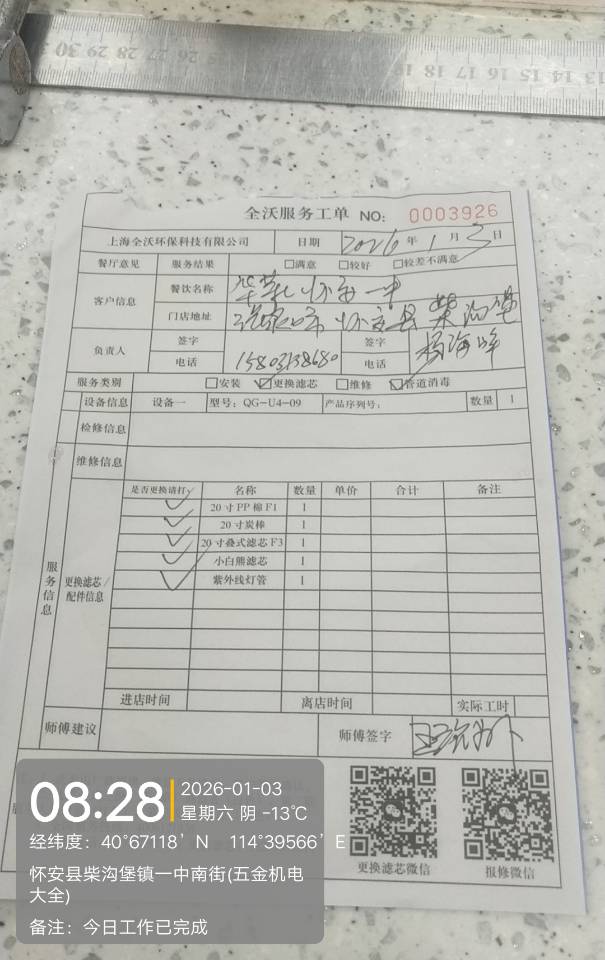 30 29 28 27 26 20 19 18 17 16 15 14 13
全沃服务工单 NO: 0003926
上海全沃环保科技有限公司 日期 2026年1月3日
餐厅意见 服务结果 □满意 □较好 □较差不满意
客户信息 餐饮名称 华莱士怀安一中
门店地址 张家口市怀安县柴沟堡
负责人 签字 签字 杨海峰
电话 15803138680 电话
服务类别 □安装 ☑更换滤芯 □维修 ☑管道消毒
设备信息 设备一 型号:QG-U4-09 产品序列号: 数量 1
检修信息
维修信息
服务信息
更换滤芯/配件信息
是否更换请打✓ 名称 数量 单价 合计 备注
✓ 20寸PP棉F1 1
✓ 20寸炭棒 1
✓ 20寸叠式滤芯F3 1
✓ 小白熊滤芯 1
✓ 紫外线灯管 1
进店时间 离店时间 实际工时
师傅建议 师傅签字
08:28
2026-01-03
星期六 阴 -13℃
经纬度:40°67118′N 114°39566′E
怀安县柴沟堡镇一中南街(五金机电
大全)
备注:今日工作已完成
更换滤芯微信 报修微信